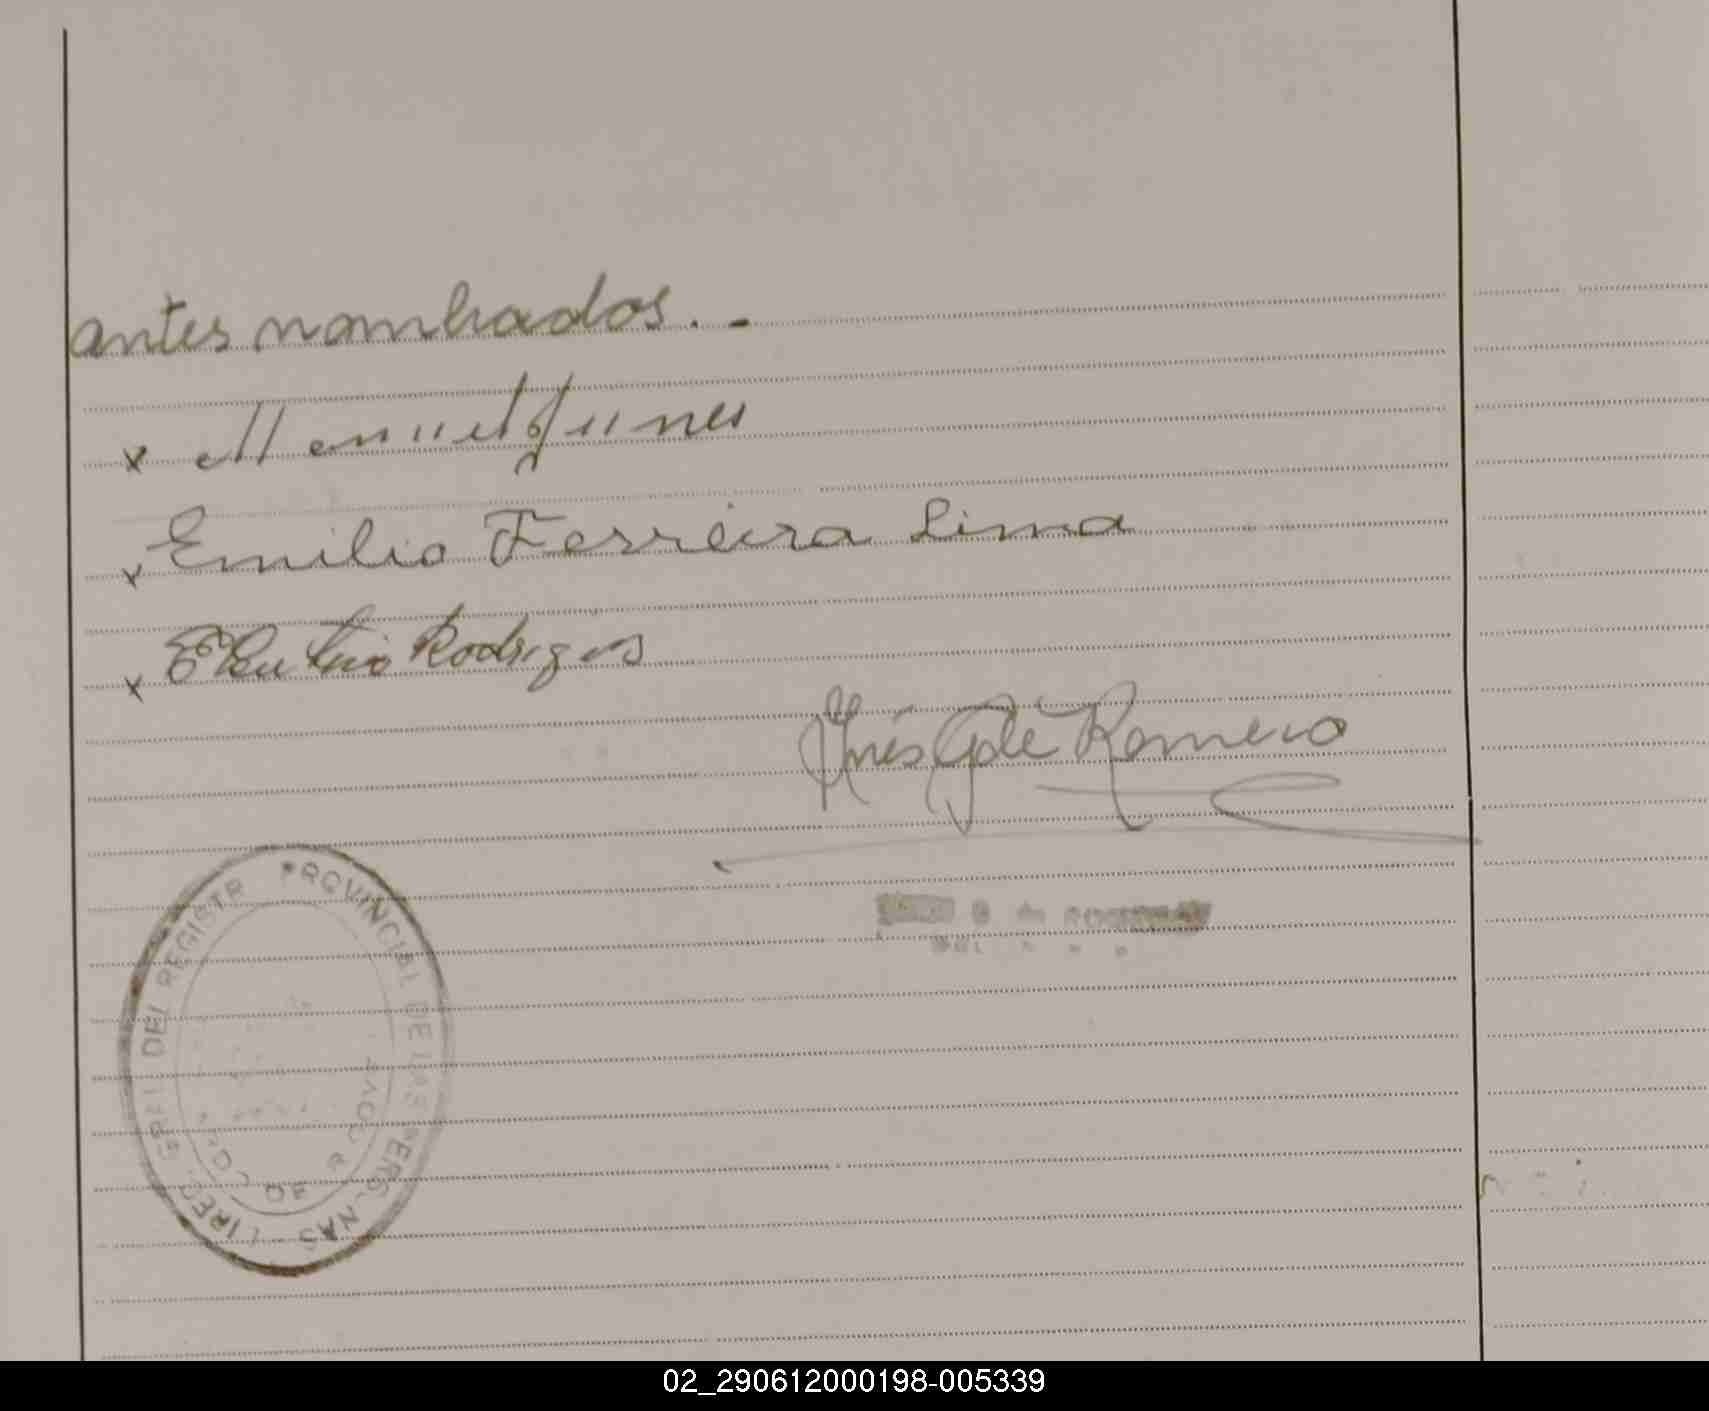 antes nombrados. -
x Manuel Junes
x Emilio Ferreira Lima
x Eleuterio Rodrigues
Inés G de Romero
DEL REGISTR PROVINCIAL DE LAS PERSONAS
02_290612000198-005339